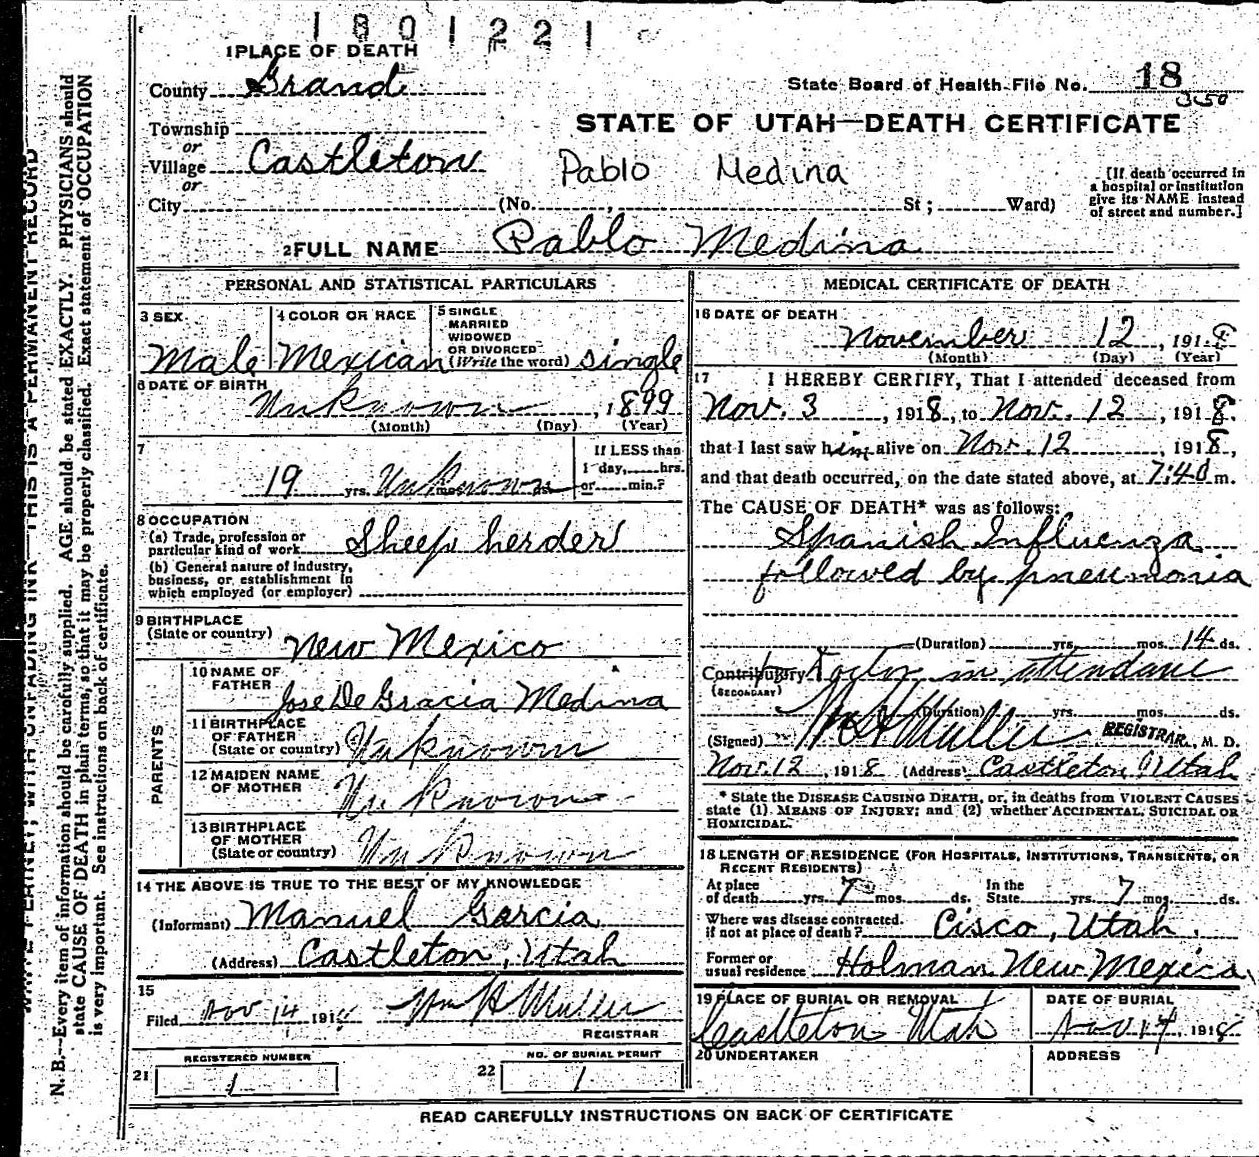 1801221
1 PLACE OF DEATH
County Grand
State Board of Health File No. 18
350
Township
or
STATE OF UTAH—DEATH CERTIFICATE
Village Castleton
Pablo Medina
or
City (No. , St ; Ward)
[If death occurred in
a hospital or institution
give its NAME instead
of street and number.]
2 FULL NAME Pablo Medina
PERSONAL AND STATISTICAL PARTICULARS
3 SEX Male
4 COLOR OR RACE Mexican
5 SINGLE
MARRIED
WIDOWED
OR DIVORCED
(Write the word) single
6 DATE OF BIRTH
Unknown , 1899
(Month) (Day) (Year)
7
19 yrs. Unknown mos. ds.
If LESS than
1 day, hrs.
or min.?
8 OCCUPATION
(a) Trade, profession or
particular kind of work Sheep herder
(b) General nature of industry,
business, or establishment in
which employed (or employer)
9 BIRTHPLACE
(State or country) New Mexico
PARENTS
10 NAME OF
FATHER Jose De Gracia Medina
11 BIRTHPLACE
OF FATHER
(State or country) Unknown
12 MAIDEN NAME
OF MOTHER Unknown
13 BIRTHPLACE
OF MOTHER
(State or country) Unknown
14 THE ABOVE IS TRUE TO THE BEST OF MY KNOWLEDGE
(Informant) Manuel Garcia
(Address) Castleton, Utah
15
Filed Nov 14 1918 Wm H Muller
REGISTRAR
REGISTERED NUMBER
21 1
NO. OF BURIAL PERMIT
22 1
MEDICAL CERTIFICATE OF DEATH
16 DATE OF DEATH
November 12, 1918
(Month) (Day) (Year)
17 I HEREBY CERTIFY, That I attended deceased from
Nov. 3, 1918, to Nov. 12, 1918.
that I last saw him alive on Nov. 12, 1918,
and that death occurred, on the date stated above, at 7:40 m.
The CAUSE OF DEATH* was as follows:
Spanish Influenza
followed by pneumonia
(Duration) yrs. mos. 14 ds.
Contributory Doctor in attendance
(SECONDARY)
(Duration) yrs. mos. ds.
(Signed) Wm H Muller REGISTRAR, M. D.
Nov. 12, 1918 (Address) Castleton Utah
* State the DISEASE CAUSING DEATH, or, in deaths from VIOLENT CAUSES
state (1) MEANS OF INJURY; and (2) whether ACCIDENTAL, SUICIDAL OR
HOMICIDAL.
18 LENGTH OF RESIDENCE (FOR HOSPITALS, INSTITUTIONS, TRANSIENTS, OR
RECENT RESIDENTS)
At place
of death yrs. 7 mos. ds.
In the
State yrs. 7 mos. ds.
Where was disease contracted
if not at place of death? Cisco, Utah.
Former or
usual residence Holman New Mexico
19 PLACE OF BURIAL OR REMOVAL
Castleton Utah
DATE OF BURIAL
Nov 14, 1918
20 UNDERTAKER
ADDRESS
READ CAREFULLY INSTRUCTIONS ON BACK OF CERTIFICATE
WITH UNFADING INK—THIS IS A PERMANENT RECORD
N. B.—Every item of information should be carefully supplied. AGE should be stated EXACTLY. PHYSICIANS should
state CAUSE OF DEATH in plain terms, so that it may be properly classified. Exact statement of OCCUPATION
is very important. See instructions on back of certificate.